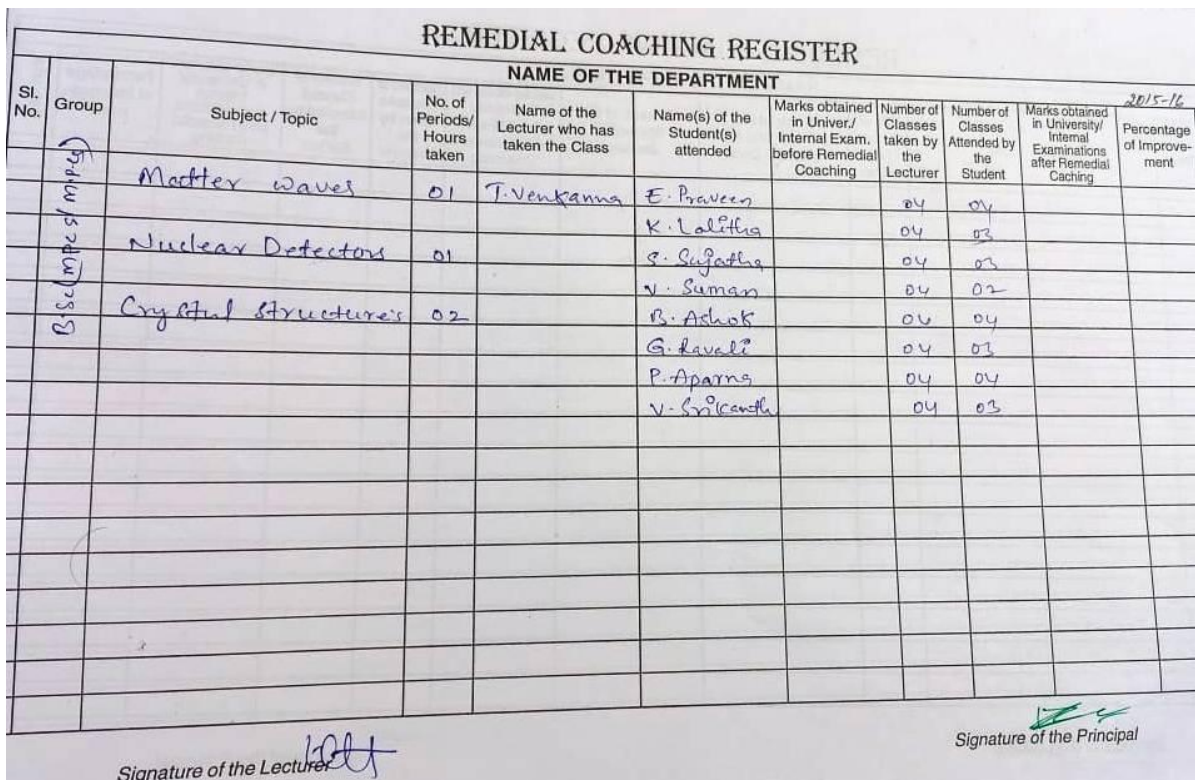 REMEDIAL COACHING REGISTER
NAME OF THE DEPARTMENT
2015-16
Sl. No.
Group
Subject / Topic
No. of Periods/ Hours taken
Name of the Lecturer who has taken the Class
Name(s) of the Student(s) attended
Marks obtained in Univer./ Internal Exam. before Remedial Coaching
Number of Classes taken by the Lecturer
Number of Classes Attended by the Student
Marks obtained in University/ Internal Examinations after Remedial Caching
Percentage of Improve- ment
B.Sc (MPCS/M.P.C)
Matter waves 01 T. Venkanna E. Praveen 04 04
K. Lalitha 04 03
Nuclear Detectors 01 S. Sujatha 04 03
V. Suman 04 02
Crystul structure's 02 B. Ashok 04 04
G. Ravali 04 03
P. Aparna 04 04
V. Srikanth 04 03
Signature of the Lecturer
Signature of the Principal